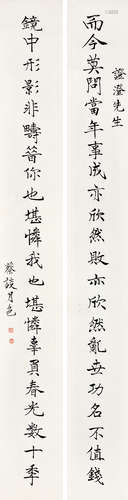 澄先生
而今莫問當年事成亦欣然敗亦欣然亂世功名不值錢
鏡中形影非疇昔你也堪憐我也堪憐辜負春光數十秊
蔡談月色